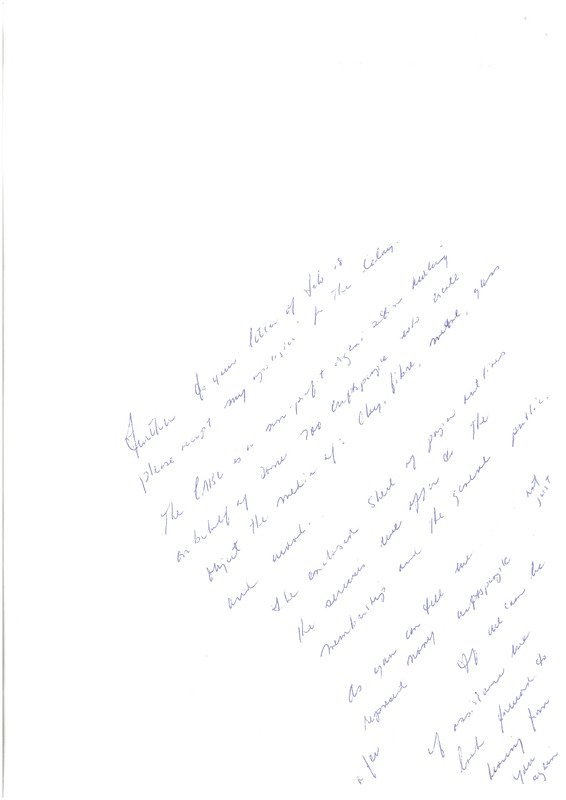 Further to your letter of Feb 18
please accept my apologies for the delay.
The is a non-profit organization working
on behalf of some 700 craftspeople who create
object the media of: clay, fibre, metal, glass
and wood.
The enclosed sheet of outlines
the services we offer to the
membership and the general public.
As you can tell we
represent many craftspeople not just
a few If we can be
of assistance we
look forward to
hearing from
you
again